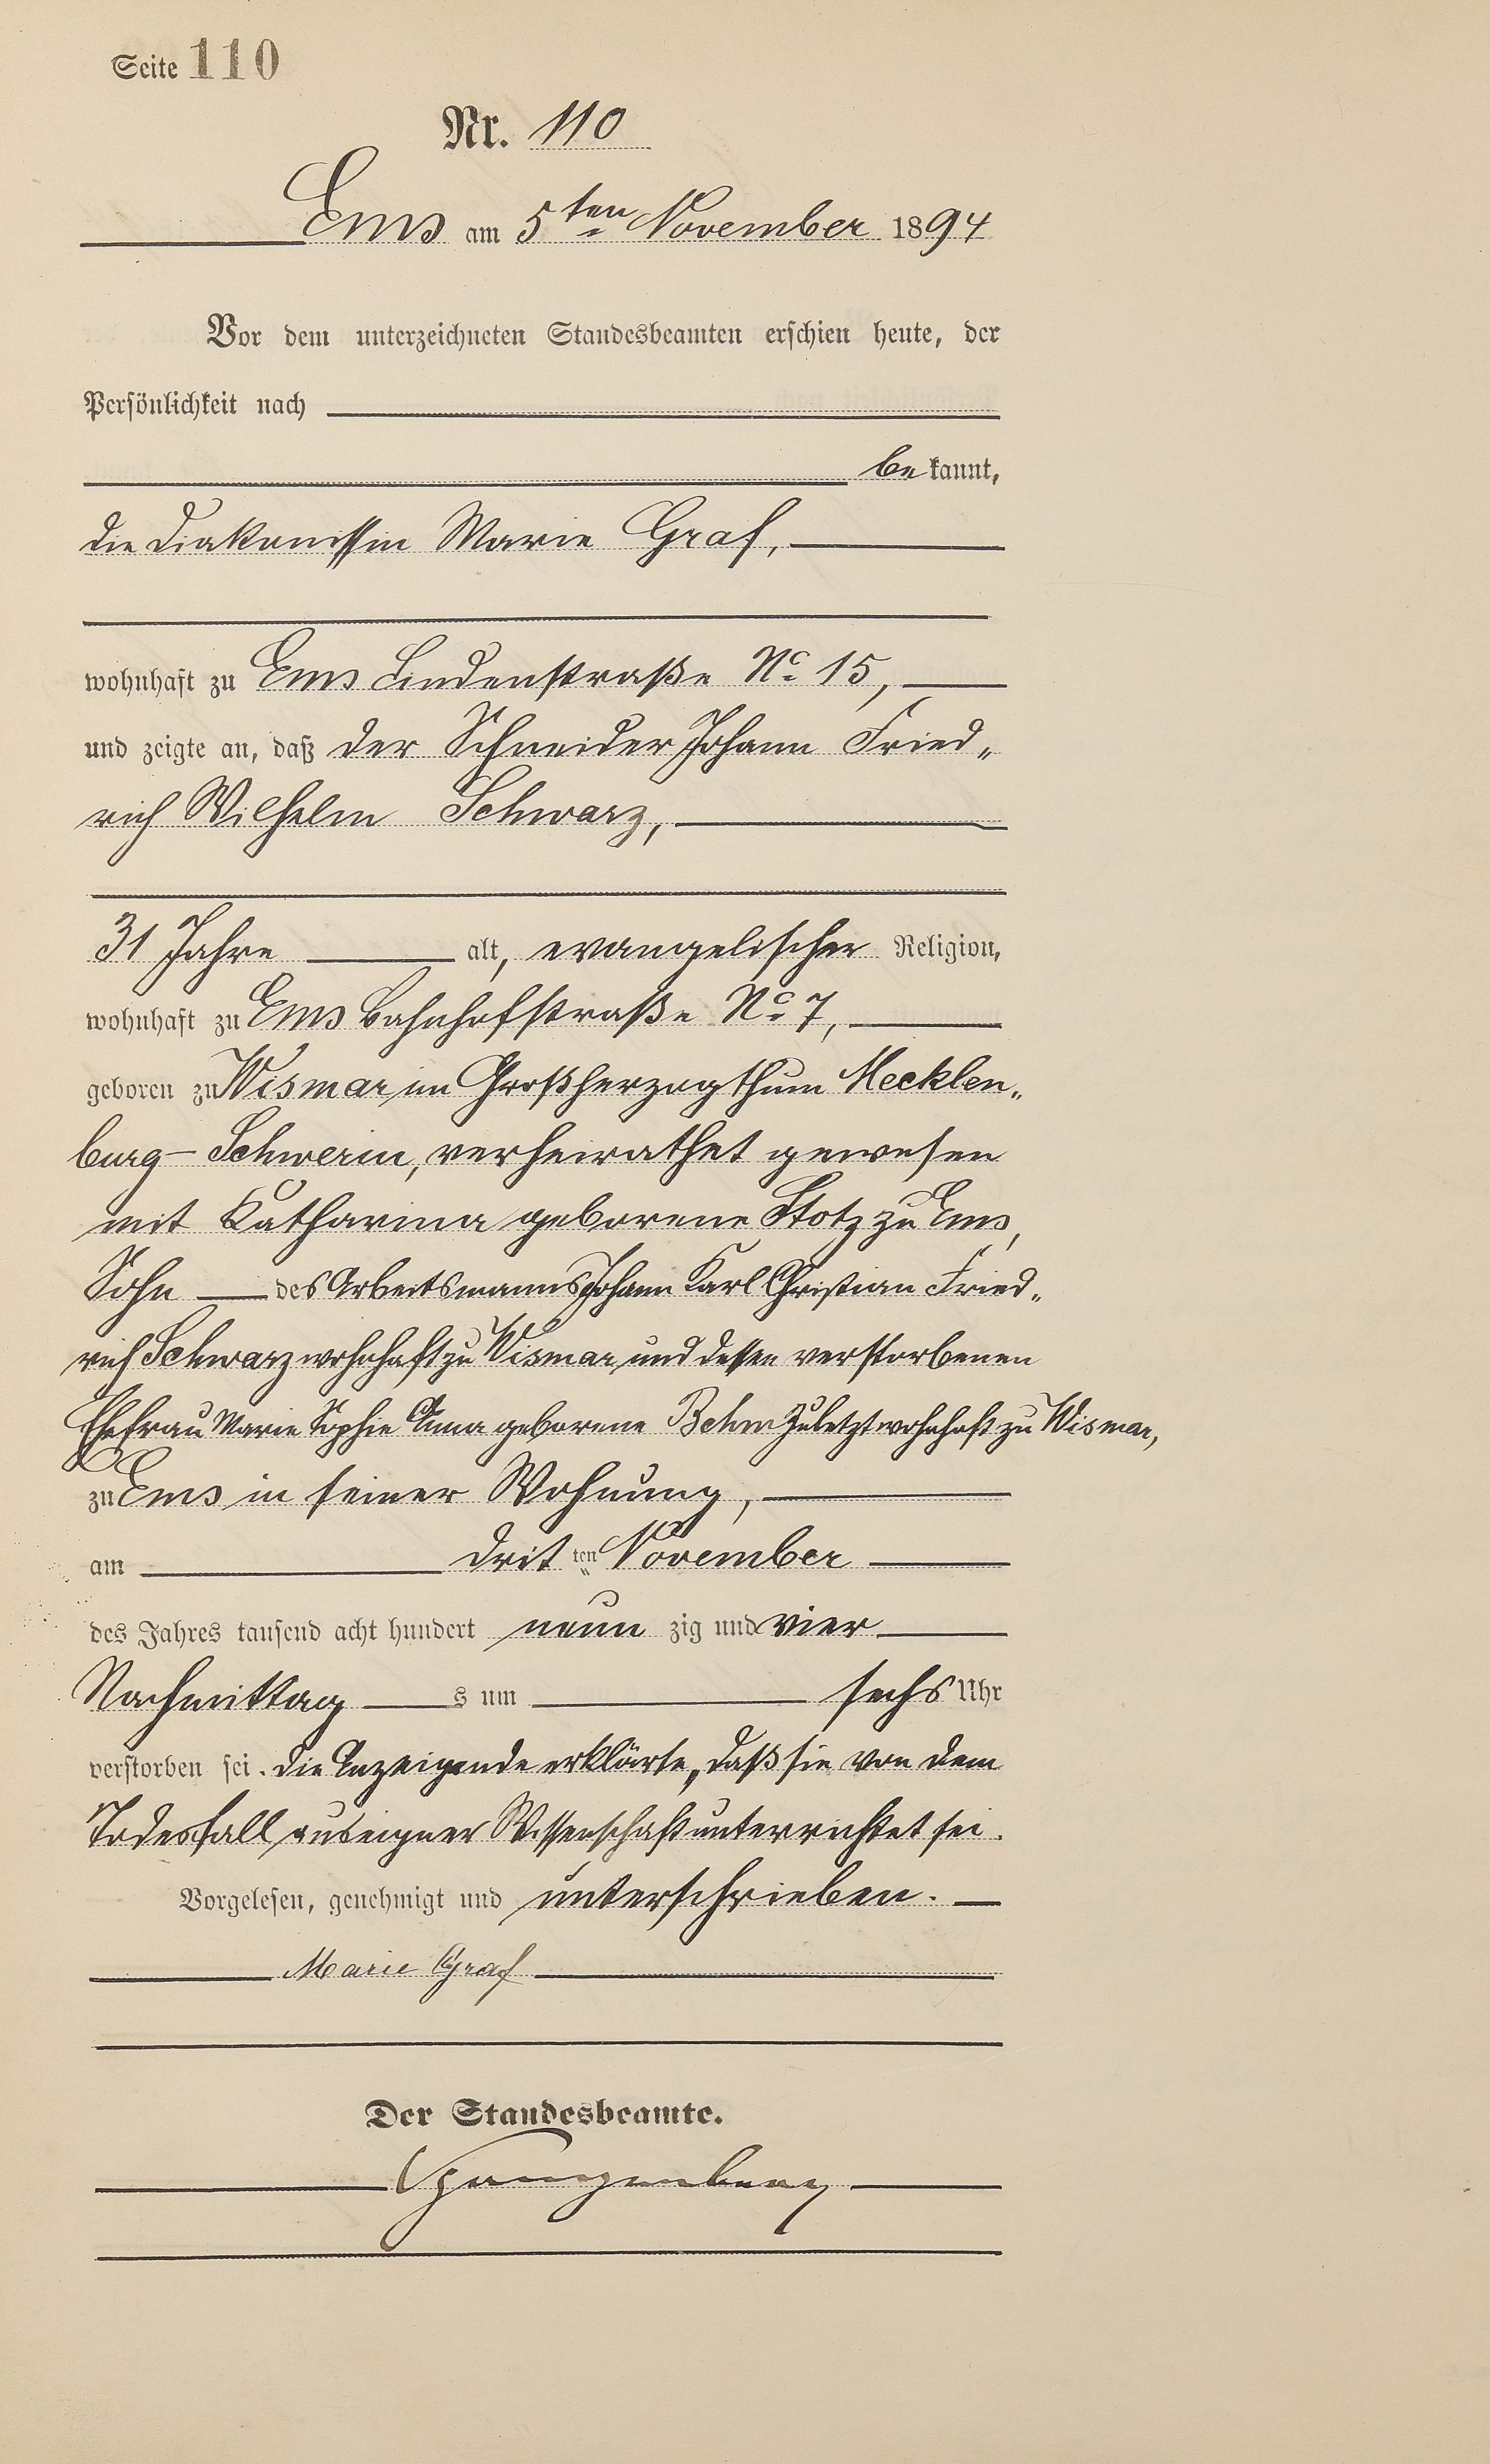 Seite 110
Nr. 110
Ems am 5ten November 1894
Vor dem unterzeichneten Standesbeamten erschien heute, der
Persönlichkeit nach
be kannt,
die Diakonissin Marie Graf,
wohnhaft zu Ems Lindenstraße No 15,
und zeigte an, daß der Schneider Johann Fried„
rich Wilhelm Schwarz,
31 Jahre alt, evangelischer Religion,
wohnhaft zu Ems Bahnhofstraße No 7,
geboren zu Wismar im Großherzogthum Mecklen„
burg-Schwerin, verheirathet gewesen
mit Katharina geborene Stotz zu Ems,
Sohn des Arbeitsmanns Johann Karl Christian Fried„
rich Schwarz wohnhaft zu Wismar und dessen verstorbenen
Ehefrau Marie Sophie Anna geborene Behm zuletzt wohnhaft zu Wismar,
zu Ems in seiner Wohnung,
am drit ten November
des Jahres tausend acht hundert neun zig und vier
Nachmittag s um sechs Uhr
verstorben sei. Die Anzeigende erklärte, daß sie von dem
Todesfall aus eigner Wissenschaft unterrichtet sei.
Vorgelesen, genehmigt und unterschrieben.
Marie Graf
Der Standesbeamte.
Spangenberg